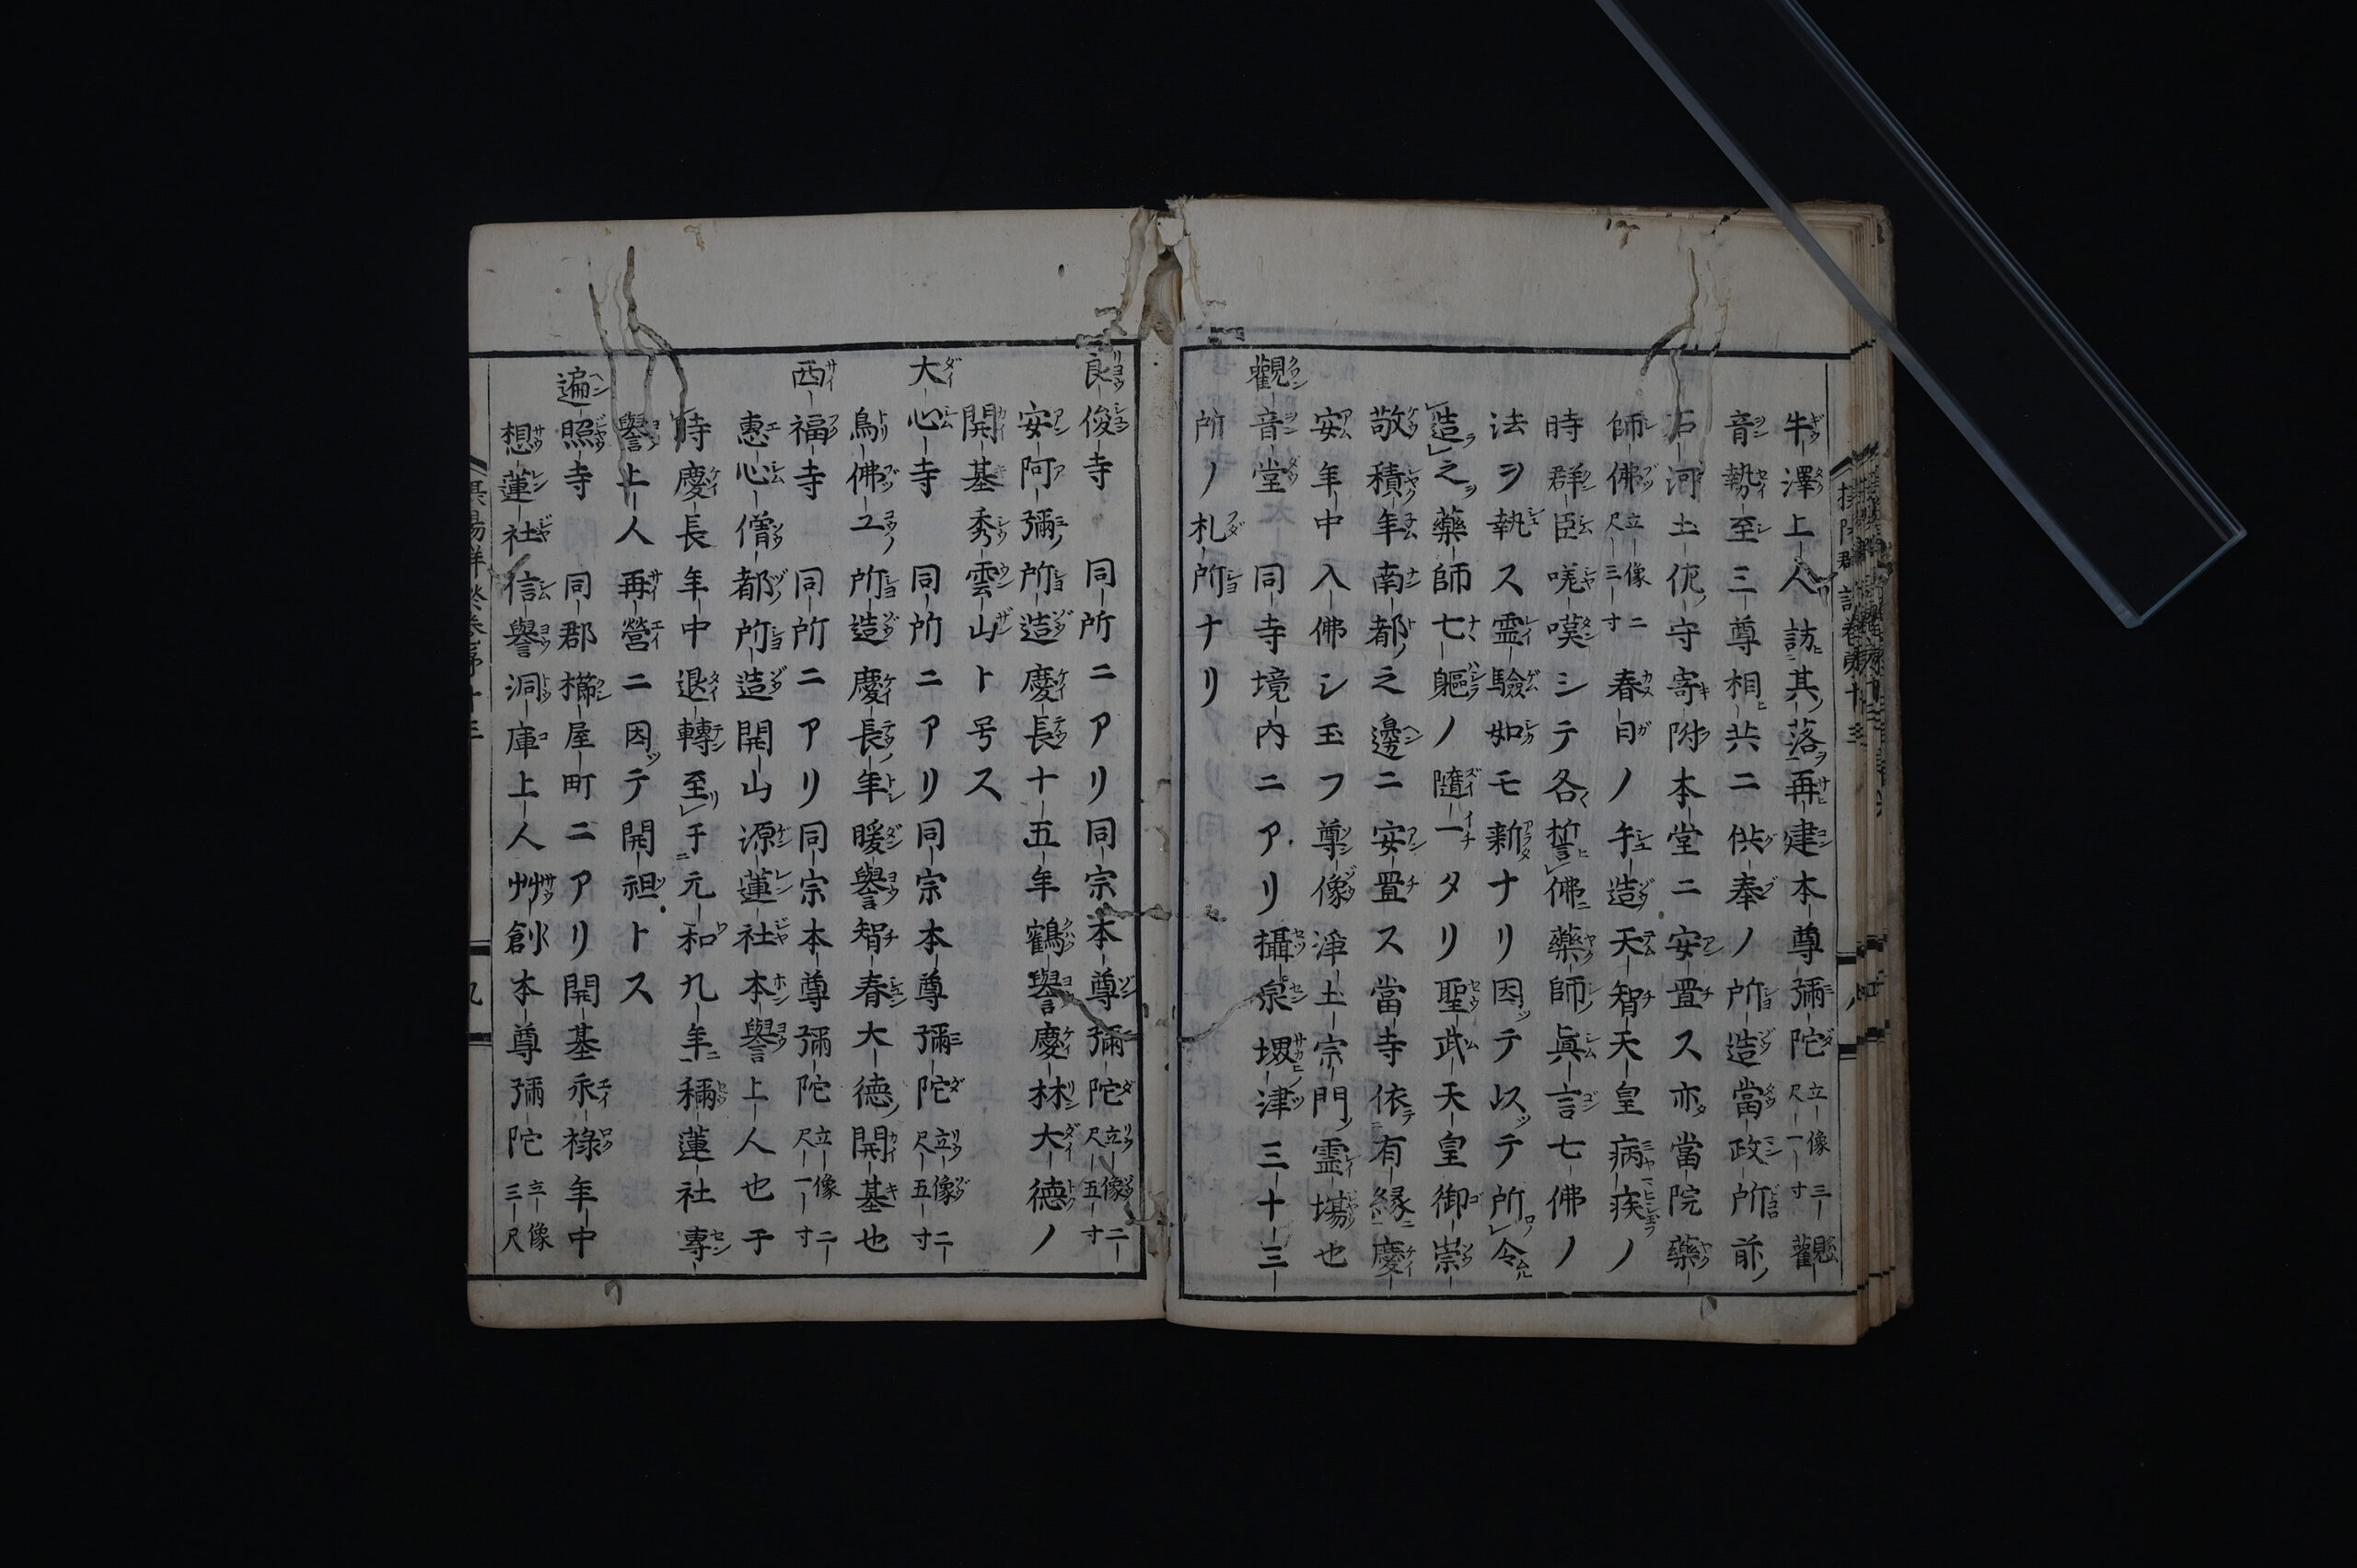 牛澤上人訪其落再建本尊彌陀立像三尺一寸觀
音勢至三尊相共ニ供奉ノ所造當政所前
石河土佐守寄附本堂ニ安置ス亦當院藥
師佛立像二尺三寸春日ノ手造天智天皇病疾ノ
時群臣嗟嘆シテ各誓佛藥師眞言七佛ノ
法ヲ執ス霊驗如モ新ナリ因テ以テ所令
造之藥師七軀ノ隨一タリ聖武天皇御崇
敬積年南都之邊ニ安置ス當寺依有縁慶
安年中入佛シ玉フ尊像淨土宗門霊場也
觀音堂 同寺境内ニアリ攝泉堺津三十三
所ノ札所ナリ
良俊寺 同所ニアリ同宗本尊彌陀立像二尺五寸
安阿彌所造慶長十五年鶴譽慶林大德ノ
開基秀雲山ト号ス
大心寺 同所ニアリ同宗本尊彌陀立像二尺五寸
鳥佛ユ所造慶長年暖譽智春大德開基也
西福寺 同所ニアリ同宗本尊彌陀立像二尺一寸
惠心僧都所造開山源蓮社本譽上人也于
時慶長年中退轉至于元和九年稱蓮社專
譽上人再營ニ因テ開祖トス
遍照寺 同郡櫛屋町ニアリ開基永祿年中
想蓮社信譽洞庫上人艸創本尊彌陀立像三尺